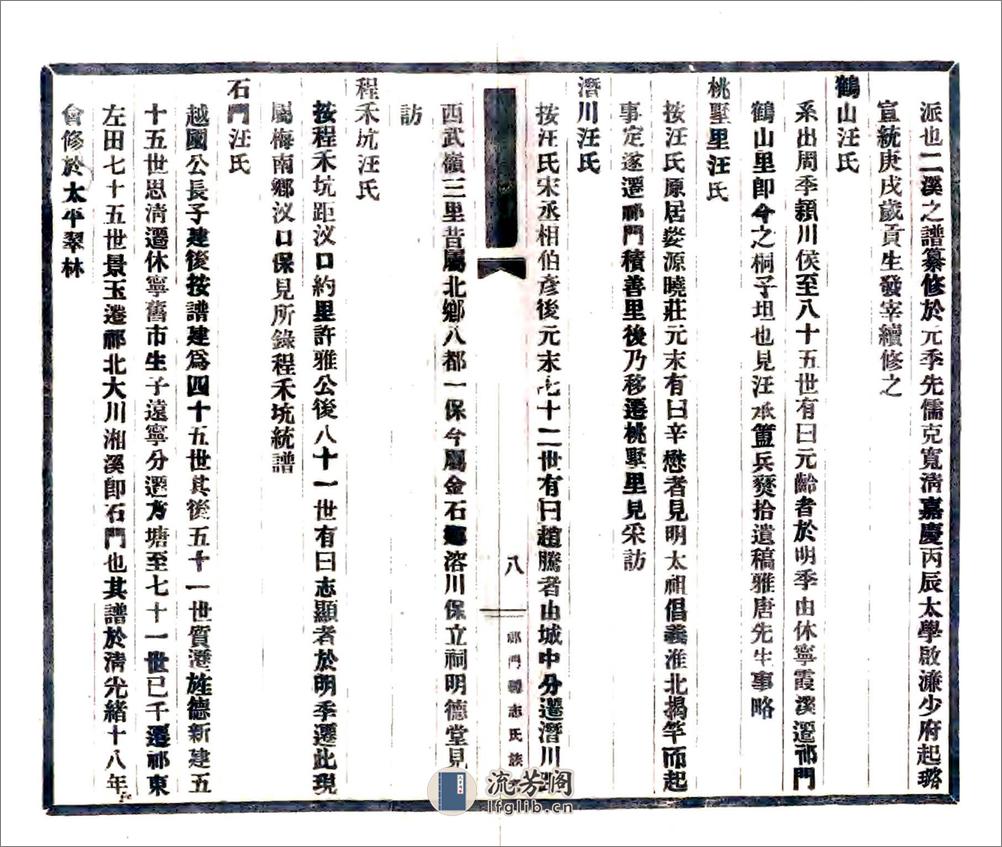 派也二溪之譜纂修於元季先儒克寬淸嘉慶丙辰太學啟濂少府起璐
宣統庚戌歲貢生發宰續修之
鶴山汪氏
系出周季潁川侯至八十五世有曰元齡者於明季由休寧霞溪遷祁門
鶴山里卽今之桐子坦也見汪承簠兵燹拾遺稿雅唐先生事略
桃墅里汪氏
按汪氏原居婺源曉莊元末有曰辛懋者見明太祖倡義淮北揭竿而起
事定遂遷祁門積善里後乃移遷桃墅里見采訪
濳川汪氏
按汪氏宋丞相伯彥後元末七十二世有曰趙騰者由城中分遷濳川
八
祁門縣志氏族
西武嶺三里昔屬北鄉八都一保今屬金石鄉溶川保立祠明德堂見
訪
程禾坑汪氏
按程禾坑距汊口約里許雅公後八十一世有曰志顯者於明季遷此現
屬梅南鄉汊口保見所錄程禾坑統譜
石門汪氏
越國公長子建後按譜建爲四十五世其後五十一世質遷旌德新建五
十五世思清遷休寧舊市生子遠寧分遷方塘至七十一世已千遷祁東
左田七十五世景玉遷祁北大川湘溪卽石門也其譜於淸光緒十八年
會修於太平翠林
流芳閣
lfglib.cn